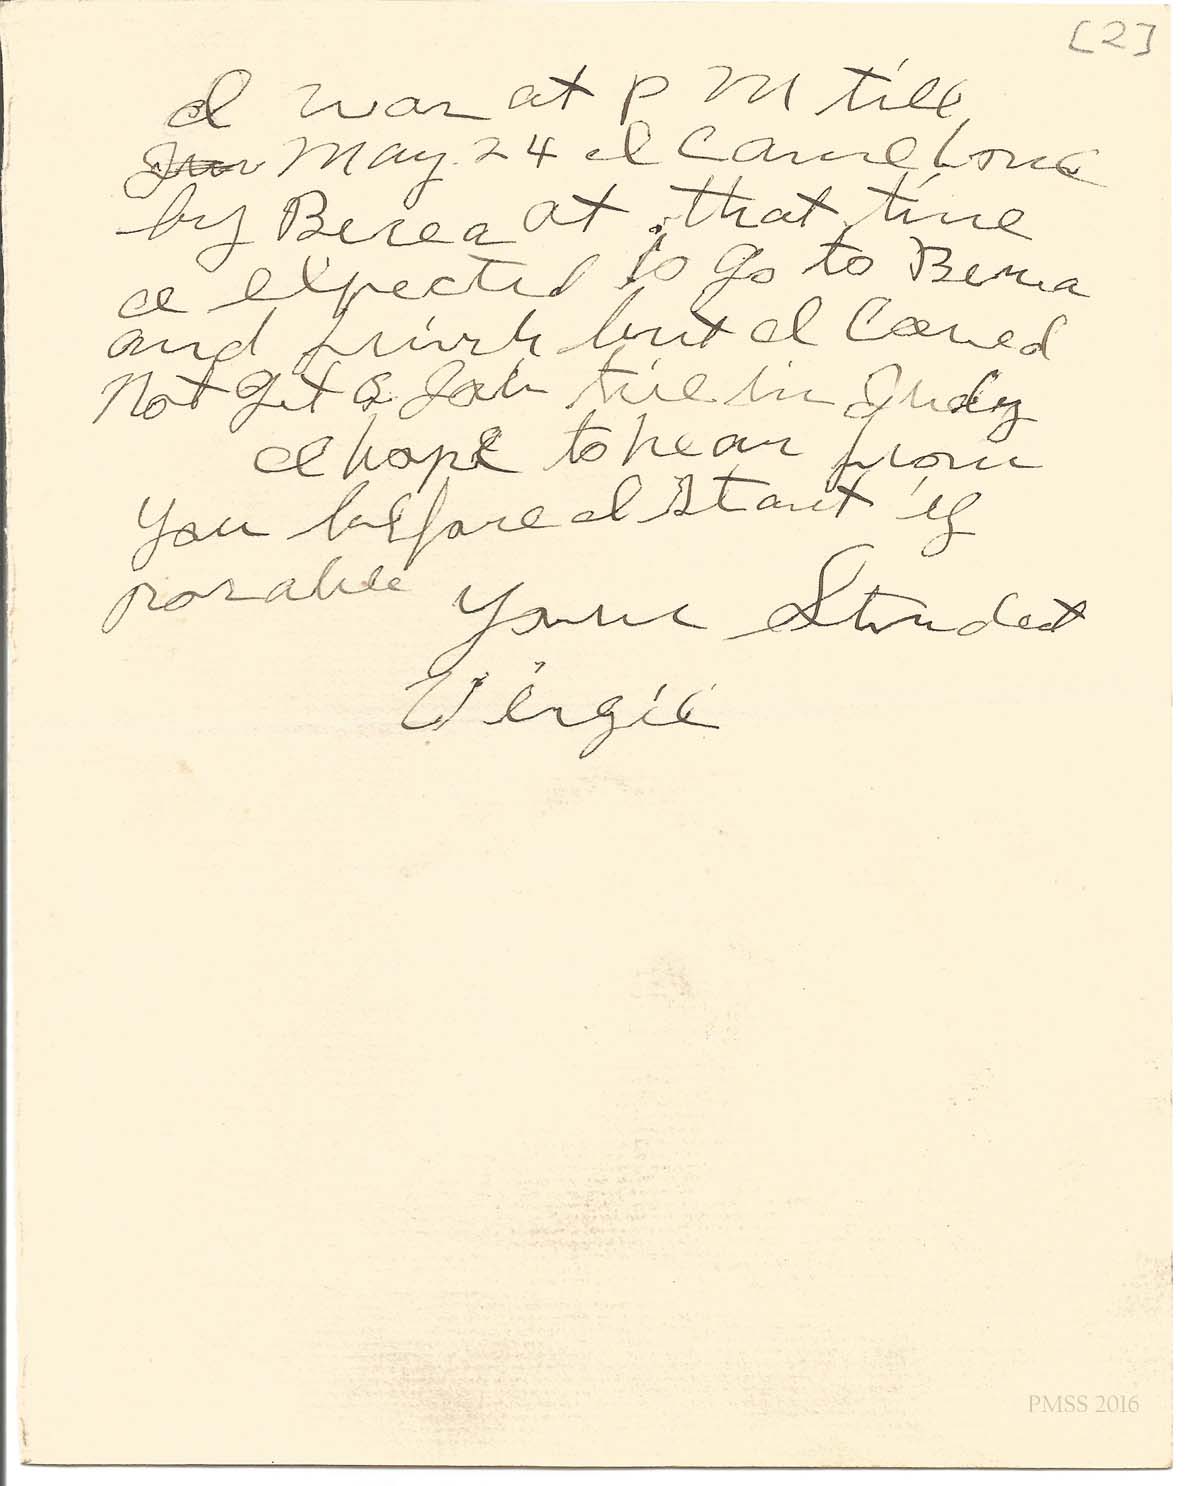 [2]
I was at P M till
Jun May 24 I came home
by Berea at that time
I expected to go to Berea
and finish but I Couled
Not get a Job till in July
I hope to hear from
you before I Start if
posable
Your Student
Virgil
PMSS 2016